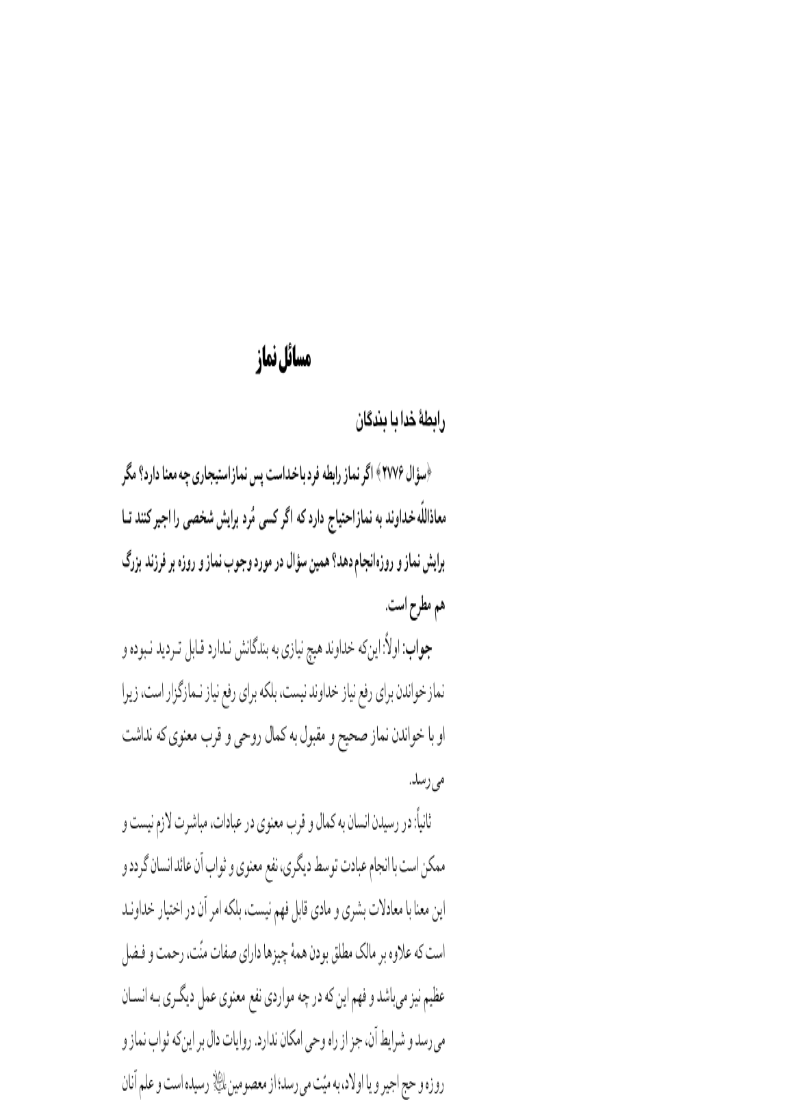 مسائل نماز
رابطهٔ خدا با بندگان
﴿سؤال ۲۷۷۶﴾ اگر نماز رابطه فرد با خداست پس نماز استیجاری چه معنا دارد؟ مگر
معاذاللّه خداوند به نماز احتیاج دارد که اگر کسی مُرد برایش شخصی را اجیر کنند تـا
برایش نماز و روزه انجام دهد؟ همین سؤال در مورد وجوب نماز و روزه بر فرزند بزرگ
هم مطرح است.
جواب: اولاً: این‌که خداوند هیچ نیازی به بندگانش نـدارد قـابل تـردید نـبوده و
نماز خواندن برای رفع نیاز خداوند نیست، بلکه برای رفع نیاز نـمازگزار است، زیرا
او با خواندن نماز صحیح و مقبول به کمال روحی و قرب معنوی که نداشت
می‌رسد.
ثانیاً: در رسیدن انسان به کمال و قرب معنوی در عبادات، مباشرت لازم نیست و
ممکن است با انجام عبادت توسط دیگری، نفع معنوی و ثواب آن عائد انسان گردد و
این معنا با معادلات بشری و مادی قابل فهم نیست، بلکه امر آن در اختیار خداونـد
است که علاوه بر مالک مطلق بودن همهٔ چیزها دارای صفات منّت، رحمت و فـضل
عظیم نیز می‌باشد و فهم این که در چه مواردی نفع معنوی عمل دیگـری بـه انسـان
می‌رسد و شرایط آن، جز از راه وحی امکان ندارد. روایات دال بر این‌که ثواب نماز و
روزه و حج اجیر و یا اولاد، به میّت می‌رسد؛ از معصومین رسیده است و علم آنان